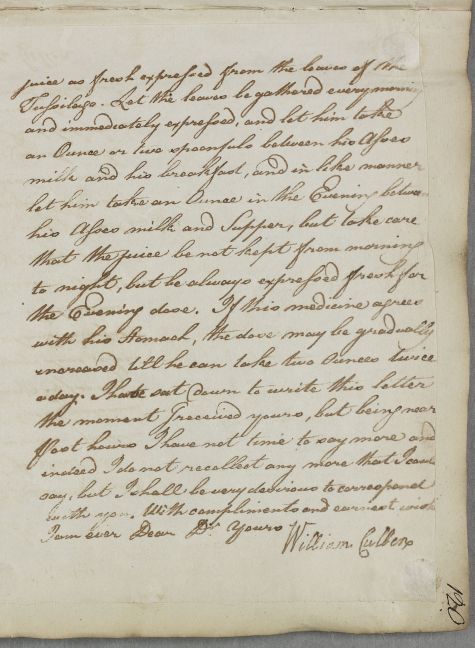 juice as fresh expressed from the leaves of the
Tussilago. Let the leaves be gathered every morning
and immediately expressed, and let him take
an Ounce or two spoonfuls between his Asses
milk and his breakfast, and in like manner
let him take an Ounce in the Evening between
his Asses milk and Supper, but take care
that the juice be not kept from morning
to night, but be always expressed fresh for
the Evening dose. If this medicine agrees
with his Stomach, the dose may be gradually
increased till he can take two Ounces twice
a day. I have sat down to write this letter
the moment I received yours, but being near
Post hours I have not time to say more and
indeed I do not recollect any more that I can
say, but I shall be very desirous to correspond
with you. With compliments and earnest wish
I am ever Dear Dr. Yours
William Cullen
120